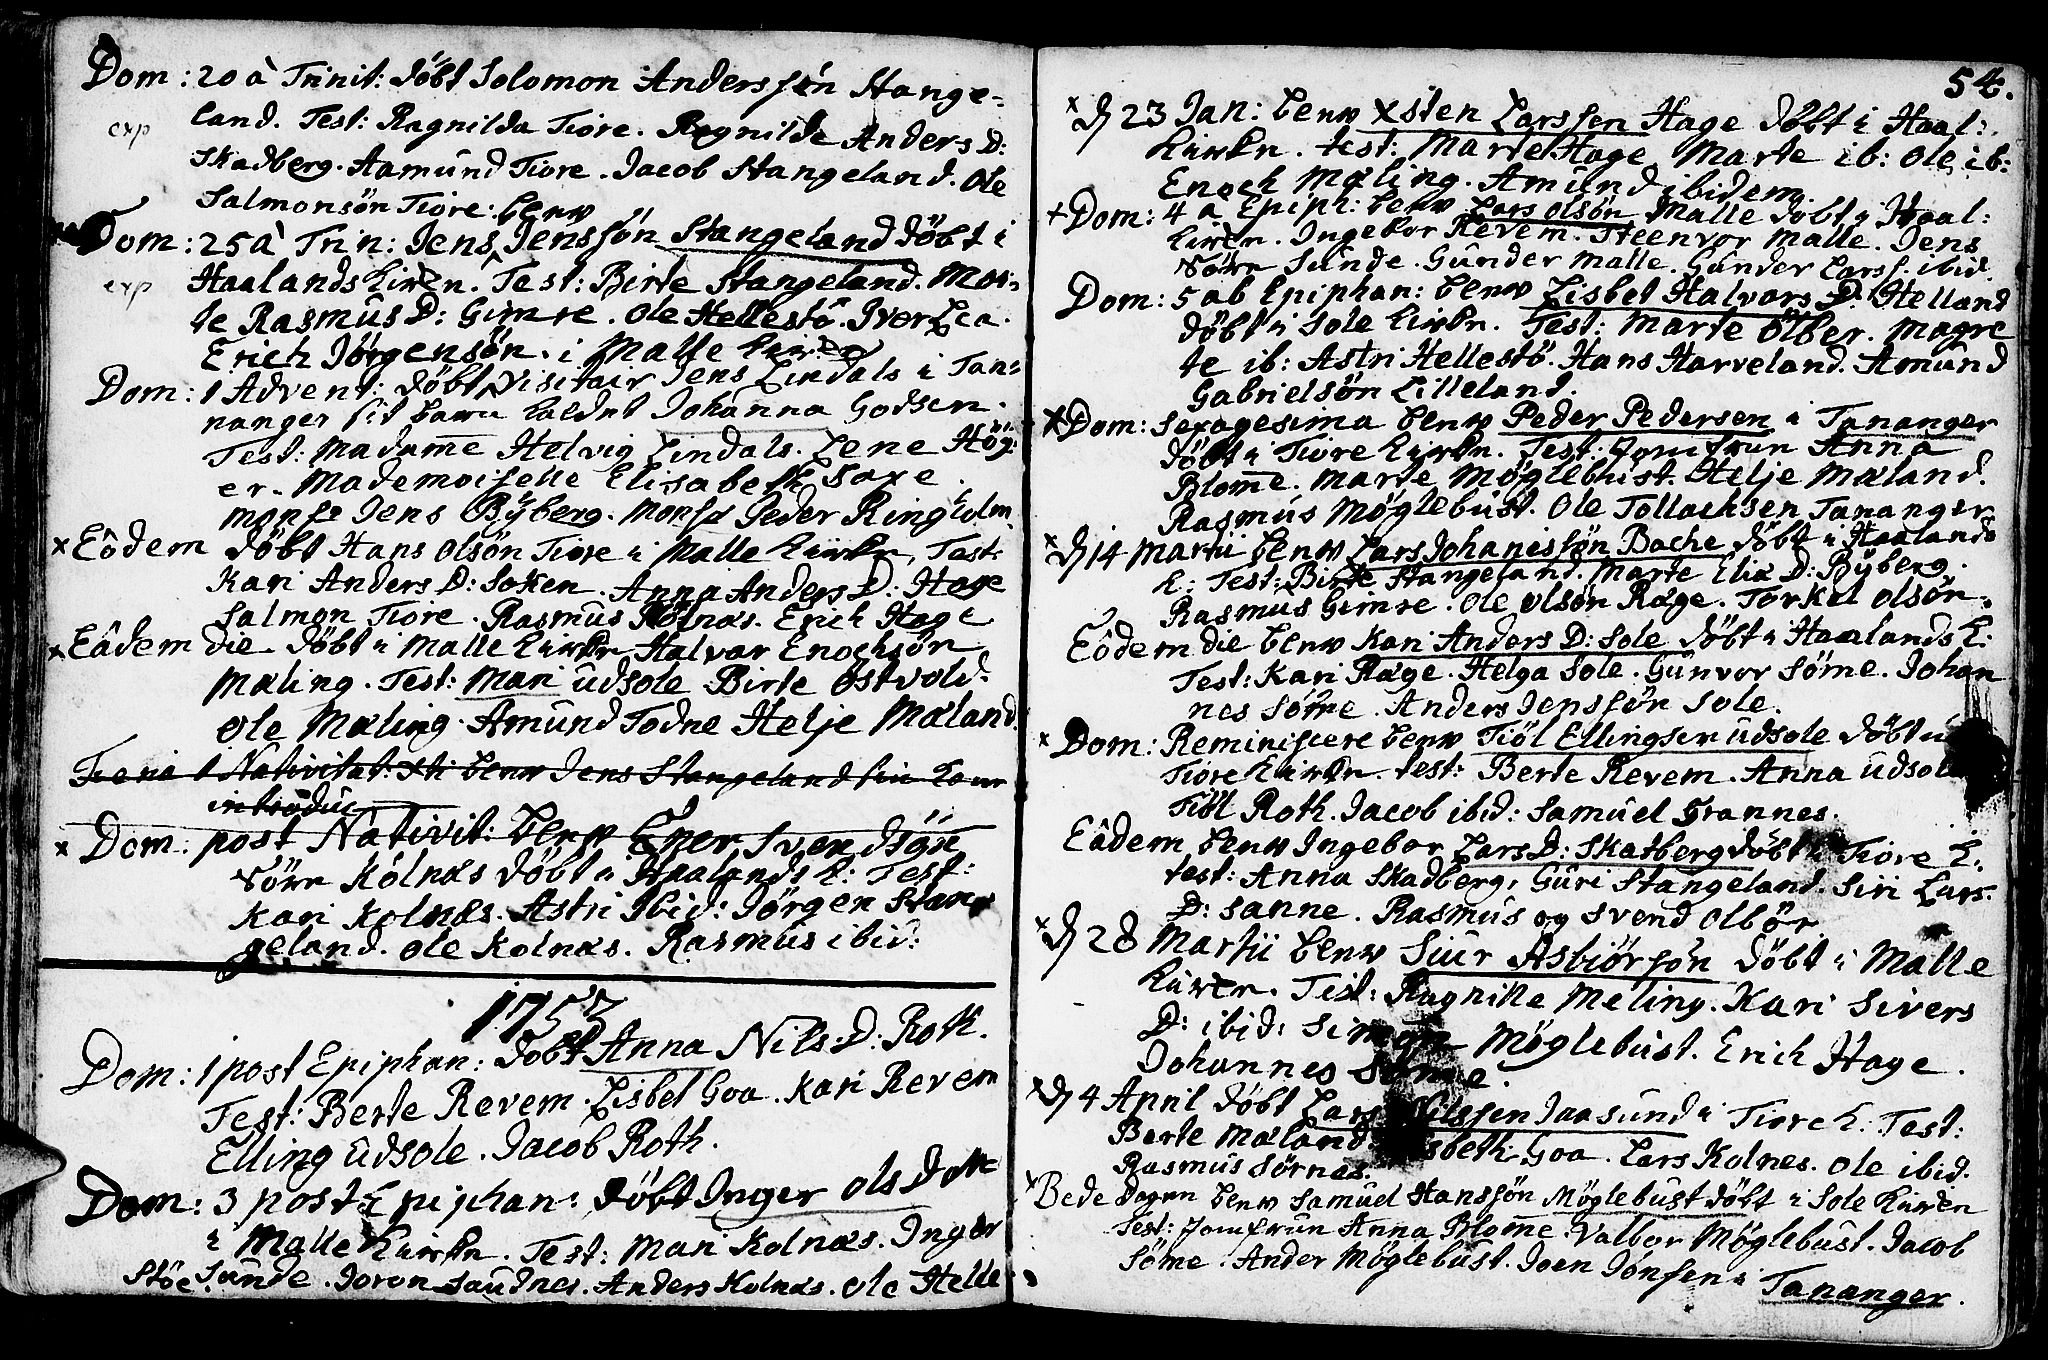 Dom: 20 à Trinit: döbt Solomon Anderssön Stange-
land. Test: Ragnilda Tiore. Ragnilda Anders D:
exp
Skadberg. Aamund Tiore. Jacob Stangeland. Ole
Salmonsön Tiore:
benv
Dom: 25 à Trin: Jens Jenssön Stangeland döbt i
exp
Haalands kirken. Test: Birte Stangeland. Mar-
te Rasmus D: Gimre. Ole Hellestö. Iver Lea.
Erich Jörgensön.
i Malle kirke
Dom: 1 Advent: döbt Visitair Jens Lindals i Tan-
nanger sit barn kaldet Johanna Godsen.
Test: Madame Helvig Lindals. Lene Höy-
er. Mademoiselle Elisabeth Saxe.
Monsr Jens Byberg. Monsr Peder Ringholm.
x Eôdem döbt Hans Olsön Tiore i Malle kirke, Test:
Kari Anders D: Soken. Anna Anders D: Hage
Salmon Tiore. Rasmus Kolnæs. Erich Hage
x Eâdem die döbt i Malle kirke Halvar Enochsön
Mæling. Test: Mari Udsole Birte Östvold.
Ole Mæling. Amund Todne Helje Mæland.
Feria 1 Nativitat: Xti benv Jens Stangeland sin kone
introduc
x Dom: post Nativit: benv Ener Svendsön
Sörn Kolnæs döbt i Haalands k: Test:
Kari Kolnæs. Astri Ibid: Jörgen Stan-
geland. Ole Kolnæs. Rasmus ibid:
1753
Dom: 1 post Epiphan: döbt Anna Nils D: Roth.
Test: Berte Revem. Lisbet Goa. Kari Revem
Elling Udsole. Jacob Roth.
Dom: 3 post Epiphan: döbt Inger Ols Dotte
i Malle kirke. Test: Mari Kolnæs. Inger
Sunde. Joron Saudnes. Anders Kolnæs. Ole Helle
Stöe.
54.
x d 23 Jan: benv Xsten Larssen Hage döbt i Haal:
kirke. test: Marte Hage Marte ib: Ole ib:
Enoch Mæling. Amund ibidem.
+ Dom: 4 a Epiph: benv Lars Olsön Malle döbt i Haal:
kirken. Ingebor Revem. Steenvor Malle. Jens
Sörn Sunde. Gunder Malle. Gunder Larss. ibid.
Dom: 5 ab Epiphan: benv Lisbet Halvars D: Helland
döbt i Sole kirke. Test: Marte Ölber. Magre
te ib: Astri Hellestö. Hans Harveland. Amund
Gabrielsön Lilleland.
x Dom: Sexagesima benv Peder Pedersen i Tananger
döbt i Tiore kirke. Test: Jomfrun Anna
Blome. Marte Möglebust. Helje Mæland.
Rasmus Möglebust. Ole Tollachsen Tananger.
x d 14 Martii benv Lars Johanissön Bache döbt i Haalands
k: Test: Birte Stangeland. Marte Elia D: Byberg.
Rasmus Gimre. Ole Olsön Ræge. Torkel Olsön.
Eôdem die benv Kari Anders D: Sole döbt i Haalands k:
Test: Kari Ræge. Helga Sole. Gunvor Söme. Johan
nes Söme. Anders Jenssön Sole.
x Dom: Reminiscere benv Tiöl Ellingsen Udsole döbt i
Tiore kirke. test: Berte Revem. Anna Udsole
Tiöl Roth. Jacob ibid: Samuel Grannes.
Eâdem benv Ingebor Lars D: Skatberg döbt i Tiore k.
test: Anna Skadberg, Guri Stangeland. Siri Lars
D: Sanne. Rasmus og Svend Olbör
x d 28 Martii benv Siur Asbiörsön döbt i Malle
kirken. Test: Ragnille Meling. Kari Sivers
D: ibid: Simon Möglebust. Erich Hage.
Johannes Söme.
x d 4 April döbt Lars Nilssen Jaasund i Tiore k. Test:
Berte Mæland Lisbeth Goa. Lars Kolnes. Ole ibid.
Rasmus Sörnæs.
x Bede dagen benv Samuel Hanssön Möglebust döbt i Sole kirken
Test: Jomfrun Anna Blome. Valbor Möglebust. Jacob
Söme. Ander Möglebust. Joen Jönsen i
Tananger.